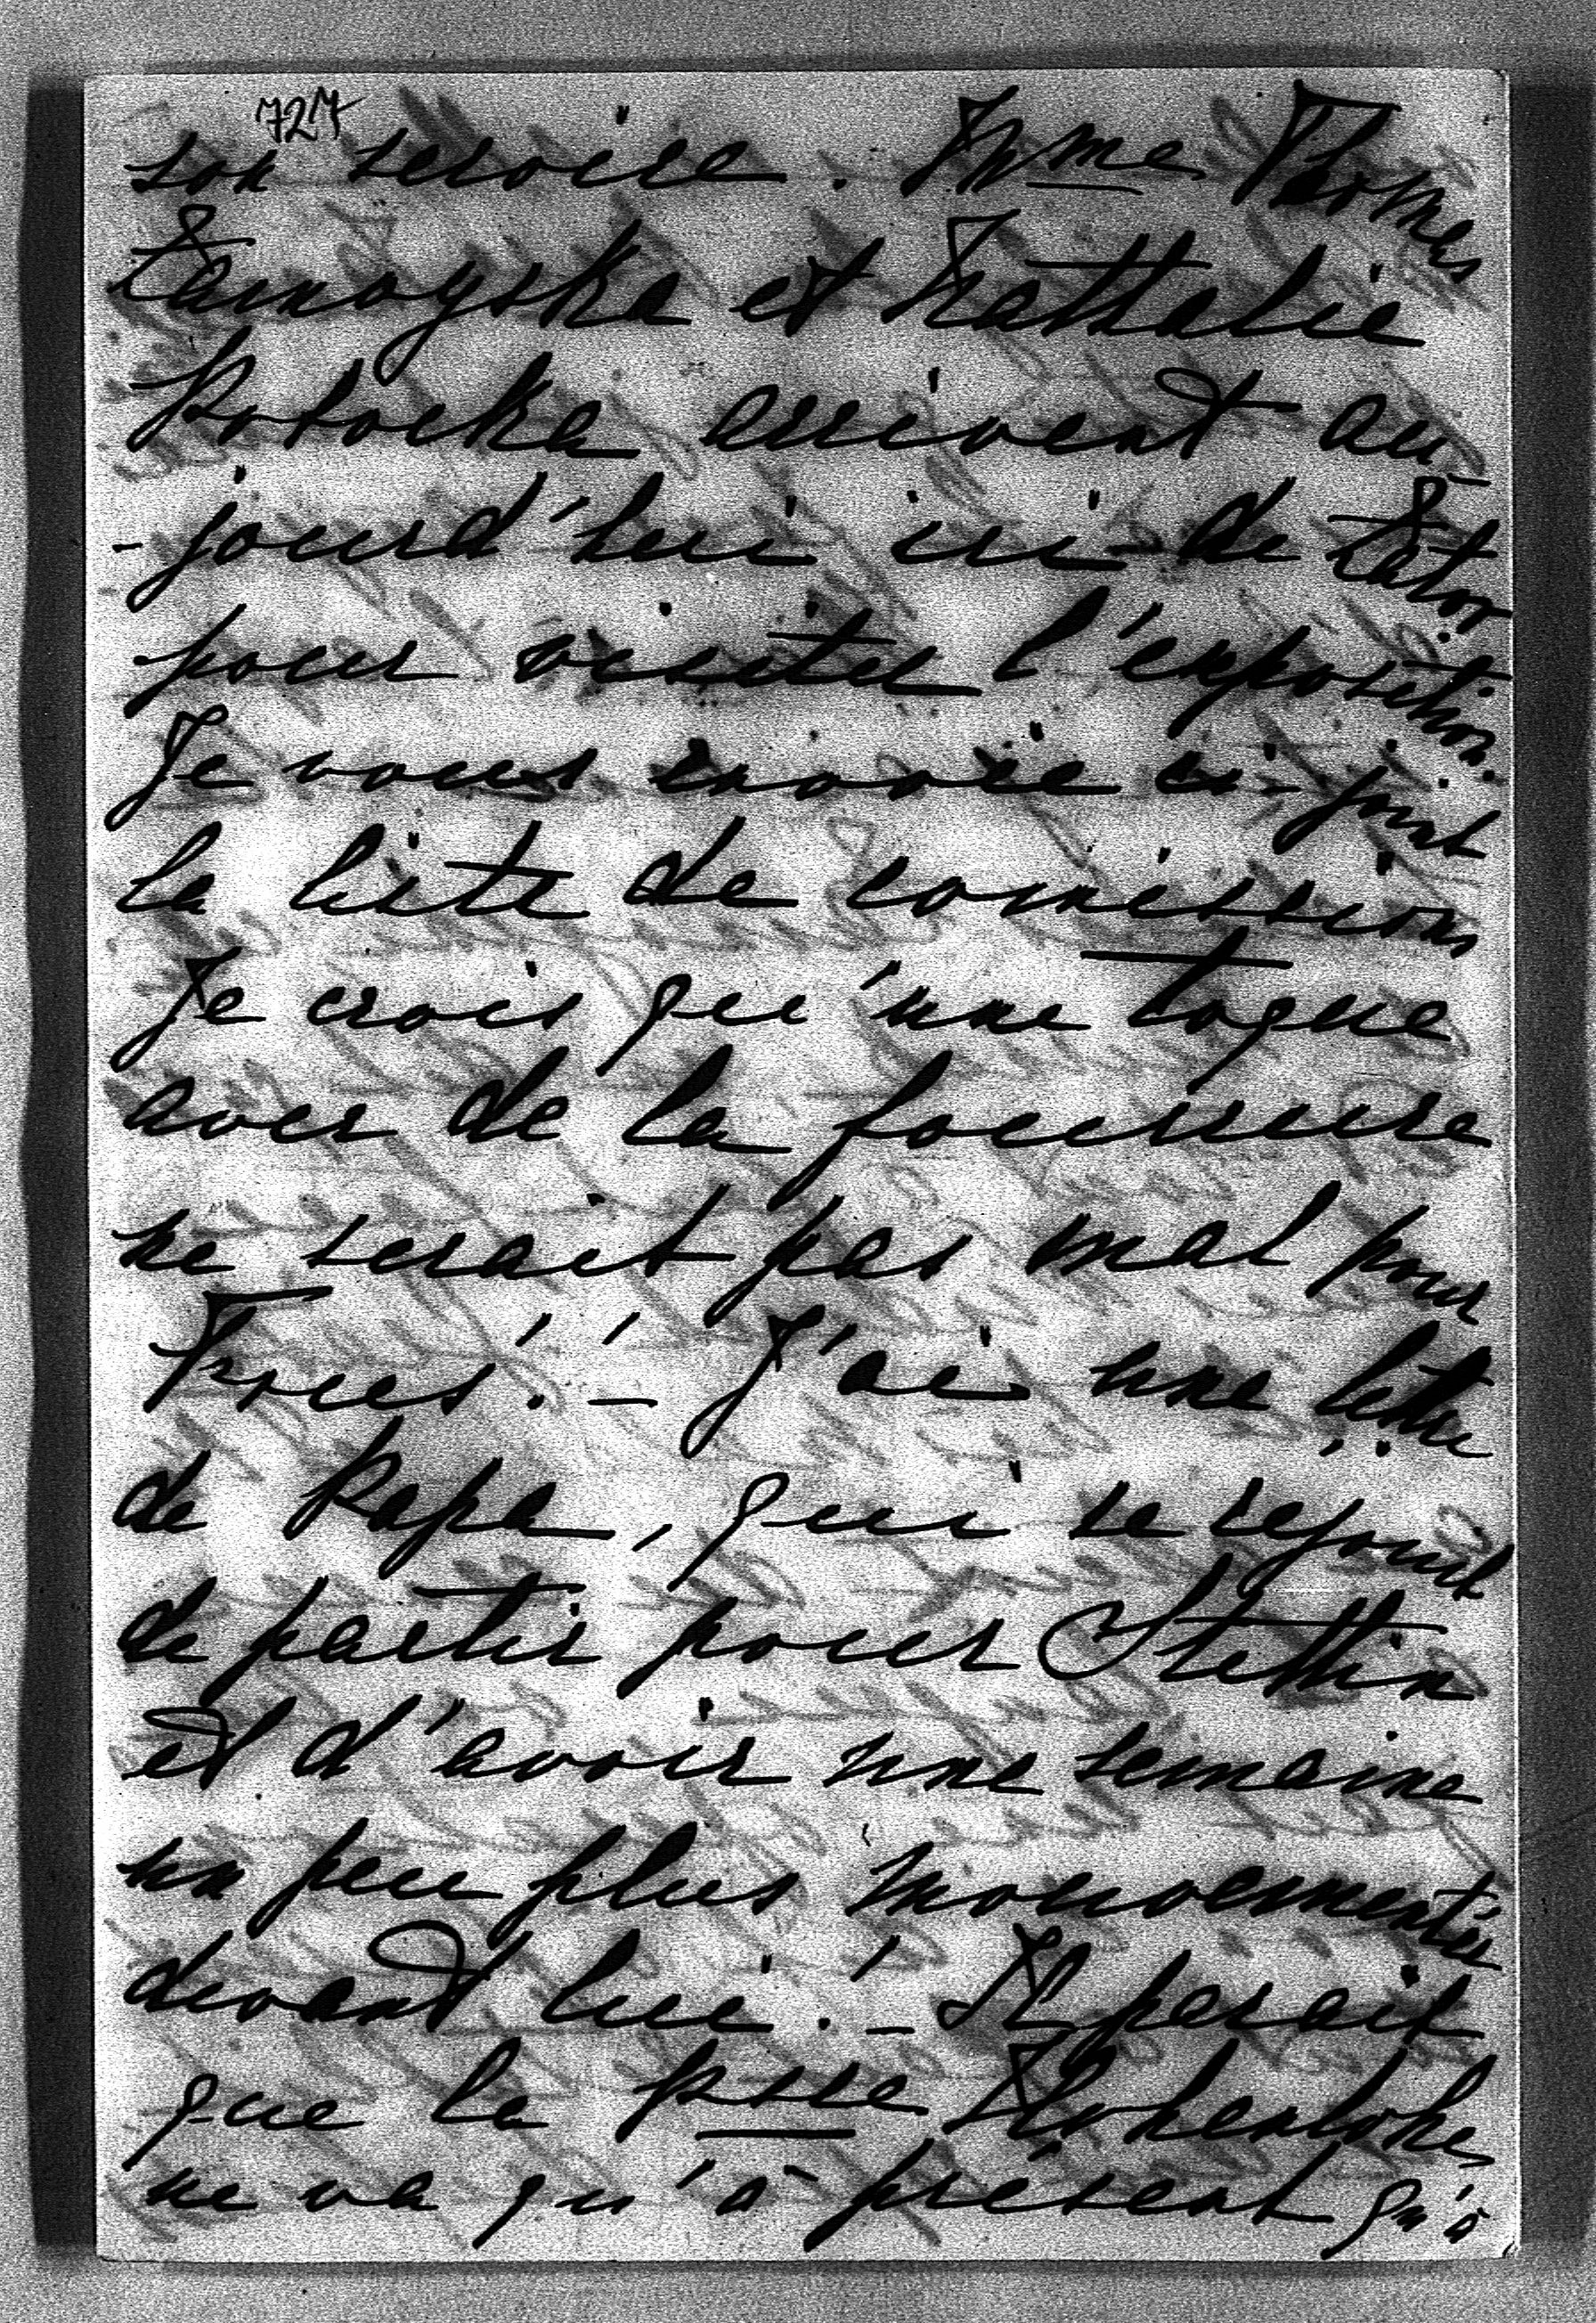 727
son service. Mme Thomas
Zamoyska et Nathalie
Potocka arrivent au-
-jourd'hui ici de Zator
pour visiter l'exposition.
Je vous envoie ci-joint
la liste de comissions
Je crois qu'une toque
avec de la fourrure
ne serait pas mal pour
J'ai une lettre
de Papa, qui se rejouit
de partir pour Stettin
et d'avoir une semaine
un peu plus mouvementée
devant lui! — Il parait
que la Psse Hohenlohe
ne va qu'à présent qu'à